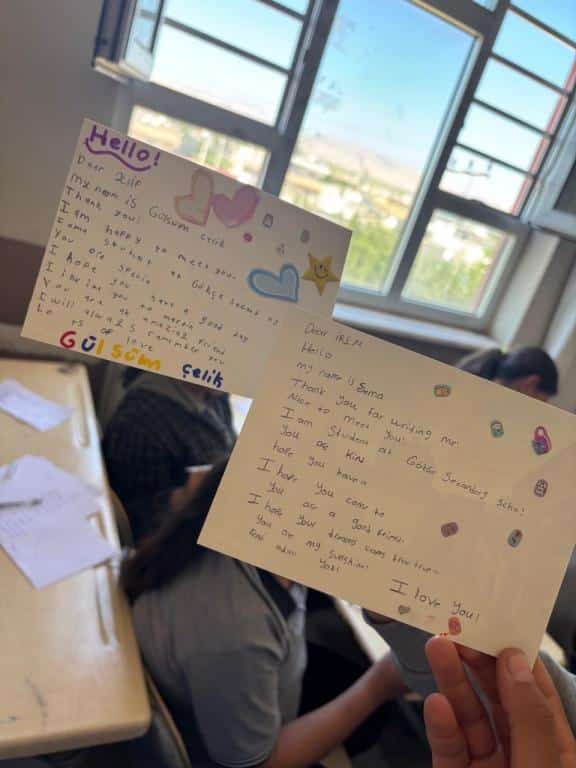 Hello!
Dear Elif
My name is Gülsüm çelik
Thank you!
I am happy to meet you.
I am student at Gökçe Secondary
You are special
I hope you have a good day
I invite you to Mardin
You are an amazing friend
I will always remember you
Lots of love
Gülsüm çelik
Dear İREM
Hello
my name is Sema
Thank you for writing me.
Nice to meet you!
I am Student at Gökçe Secondary School
You are kind
hope you have a
I hope you come to
You are a good friend.
I hope your dreams come true
You are my sunshine!
I love You!